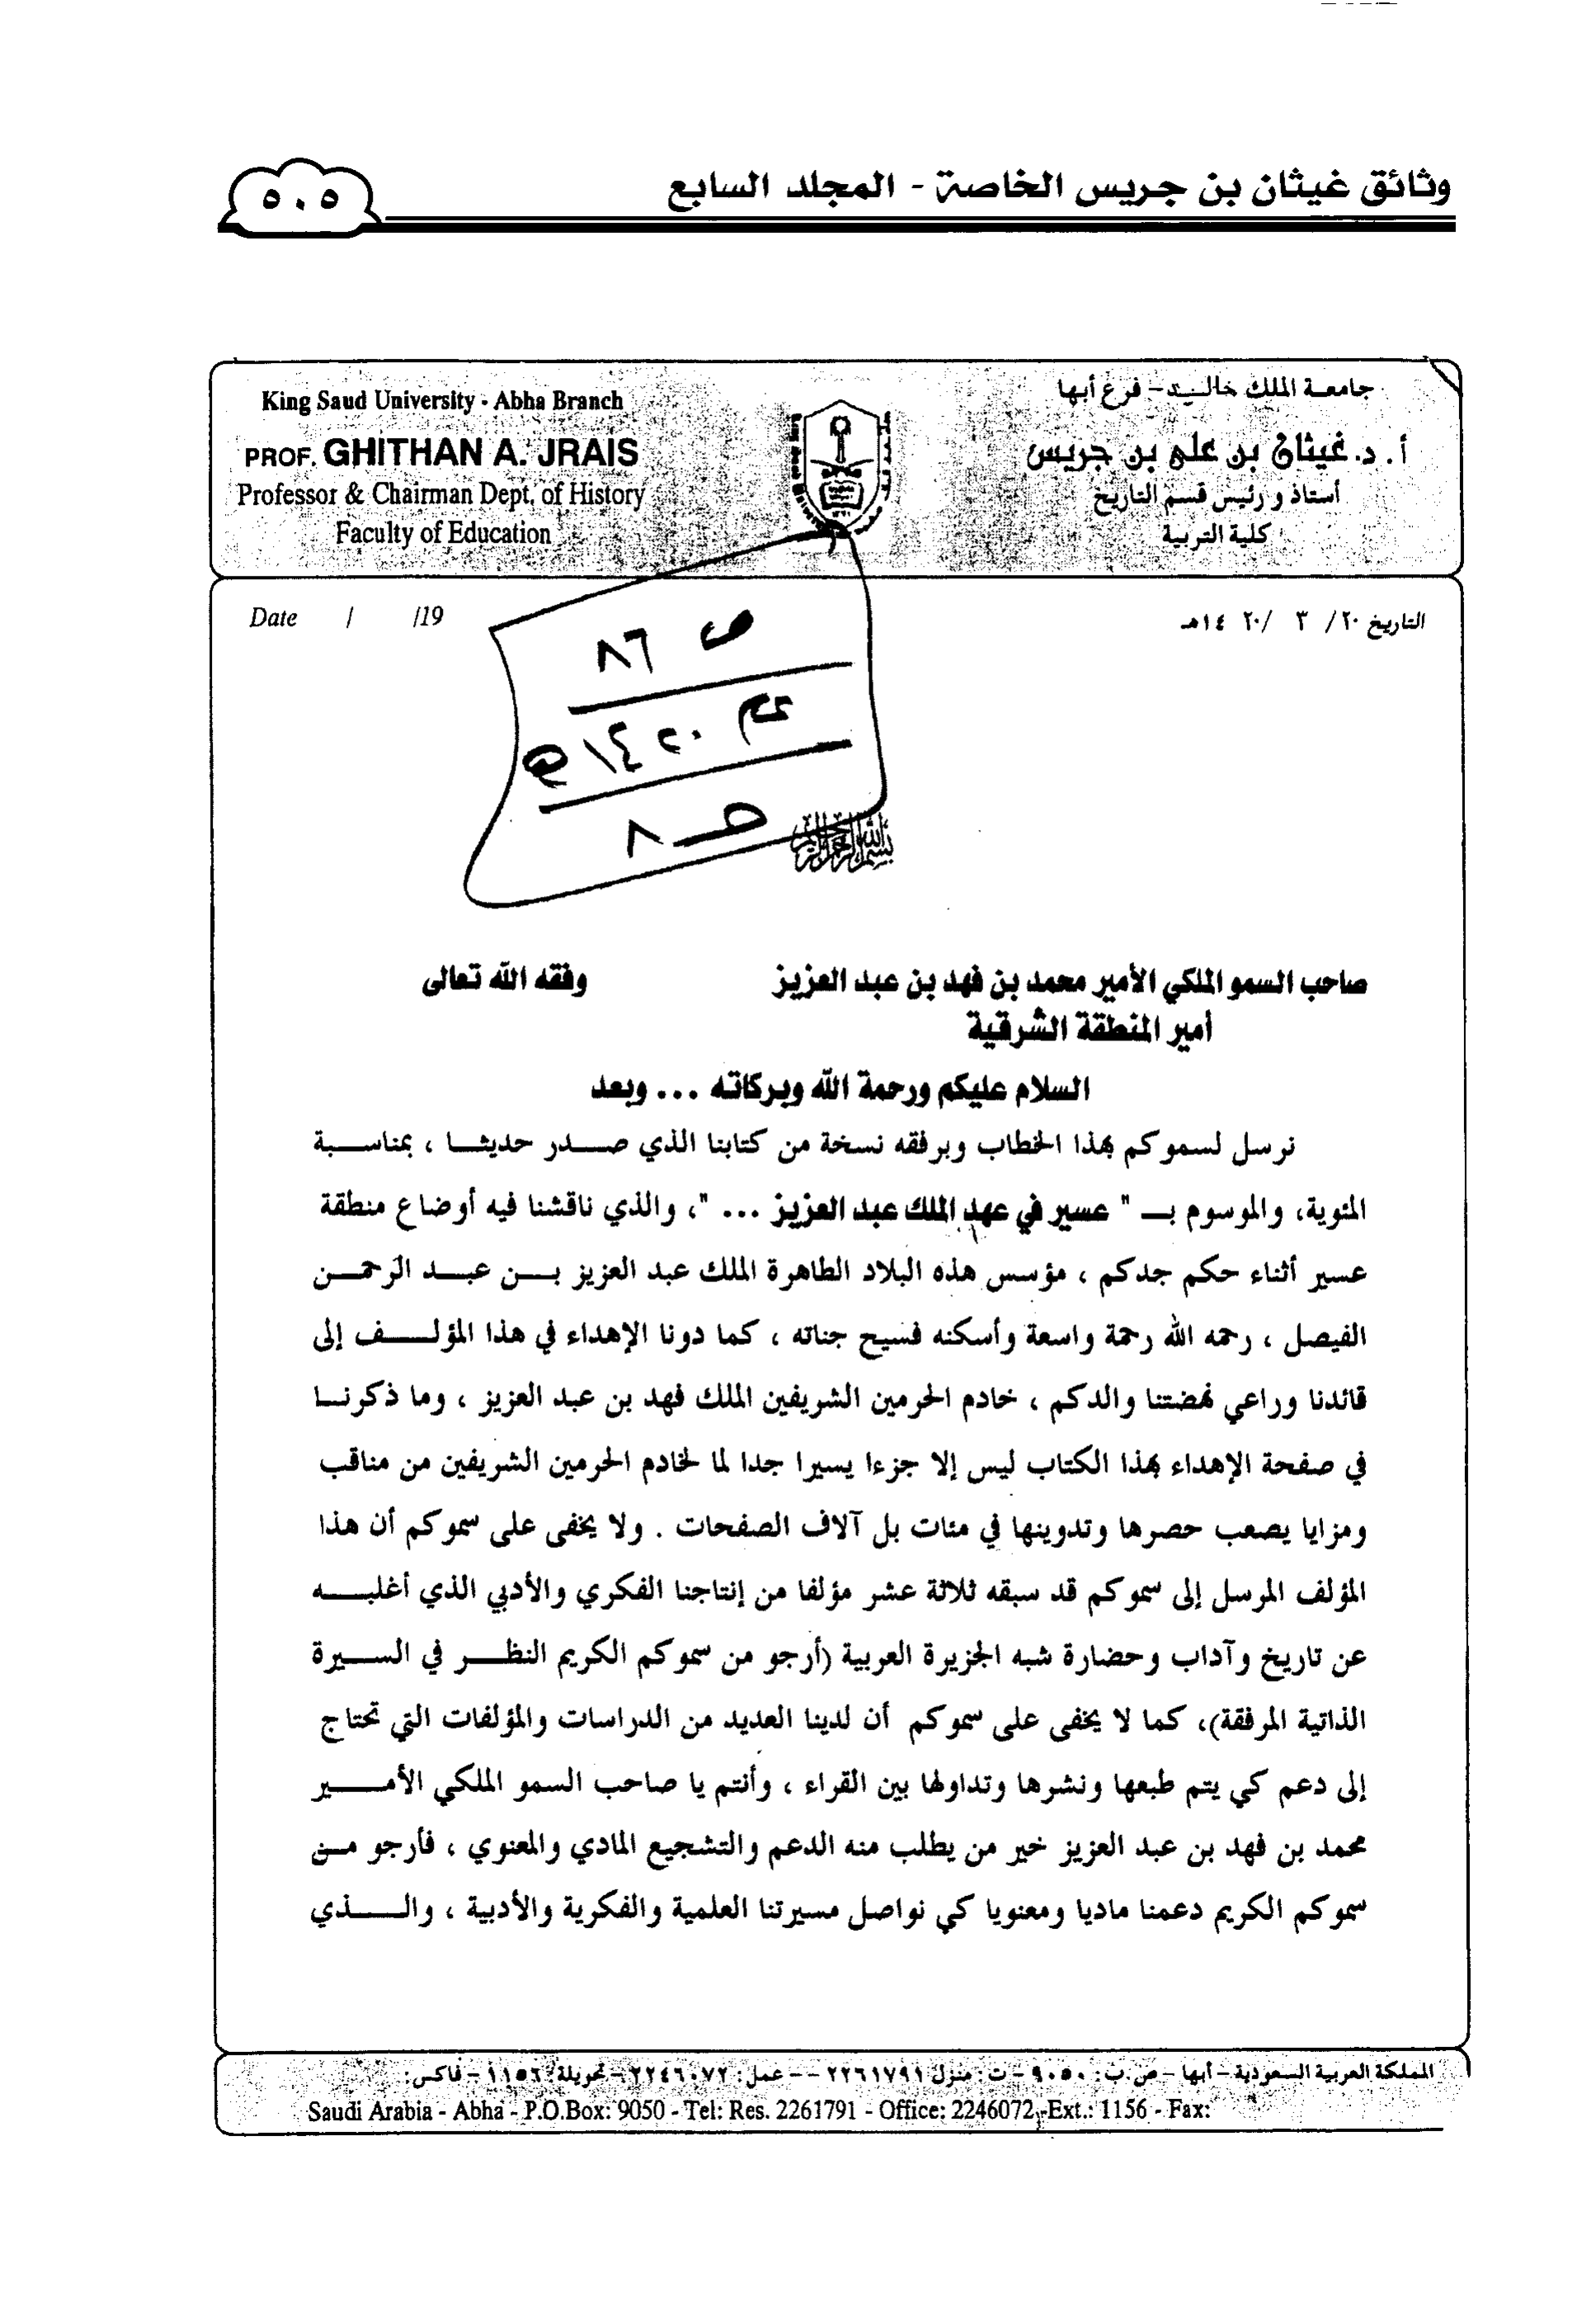 وثائق غيثان بن جريس الخاصة - المجلد السابع
٥٠٥
King Saud University - Abha Branch
PROF. GHITHAN A. JRAIS
Professor & Chairman Dept. of History
Faculty of Education
جامعة الملك خالد - فرع أبها
أ. د. غيثان بن علي بن جريس
أستاذ و رئيس قسم التاريخ
كلية التربية
Date / /19
التاريخ ٢٠/ ٣ /٢٠ ١٤هـ
ص ٨٦
عم ١٤٢٠هـ
حـ ٨
بسم الله الرحمن الرحيم
صاحب السمو الملكي الأمير محمد بن فهد بن عبد العزيز وفقه الله تعالى
أمير المنطقة الشرقية
السلام عليكم ورحمة الله وبركاته ... وبعد
نرسل لسموكم بهذا الخطاب وبرفقه نسخة من كتابنا الذي صدر حديثا ، بمناسبة
المئوية، والموسوم بـ " عسير في عهد الملك عبد العزيز ... "، والذي ناقشنا فيه أوضاع منطقة
عسير أثناء حكم جدكم ، مؤسس هذه البلاد الطاهرة الملك عبد العزيز بن عبد الرحمن
الفيصل ، رحمه الله رحمة واسعة وأسكنه فسيح جناته ، كما دونا الإهداء في هذا المؤلف إلى
قائدنا وراعي نهضتنا والدكم ، خادم الحرمين الشريفين الملك فهد بن عبد العزيز ، وما ذكرنا
في صفحة الإهداء بهذا الكتاب ليس إلا جزءا يسيرا جدا لما لخادم الحرمين الشريفين من مناقب
ومزايا يصعب حصرها وتدوينها في مئات بل آلاف الصفحات . ولا يخفى على سموكم أن هذا
المؤلف المرسل إلى سموكم قد سبقه ثلاثة عشر مؤلفا من إنتاجنا الفكري والأدبي الذي أغلبه
عن تاريخ وآداب وحضارة شبه الجزيرة العربية (أرجو من سموكم الكريم النظر في السيرة
الذاتية المرفقة)، كما لا يخفى على سموكم أن لدينا العديد من الدراسات والمؤلفات التي تحتاج
إلى دعم كي يتم طبعها ونشرها وتداولها بين القراء ، وأنتم يا صاحب السمو الملكي الأمير
محمد بن فهد بن عبد العزيز خير من يطلب منه الدعم والتشجيع المادي والمعنوي ، فأرجو من
سموكم الكريم دعمنا ماديا ومعنويا كي نواصل مسيرتنا العلمية والفكرية والأدبية ، والذي
المملكة العربية السعودية - أبها - ص.ب: ٩٠٥٠ - ت: منزل ٢٢٦١٧٩١ -- عمل: ٢٢٤٦٠٧٢ - تحويلة: ١١٥٦ - فاكس:
Saudi Arabia - Abha - P.O.Box: 9050 - Tel: Res. 2261791 - Office: 2246072 - Ext.: 1156 - Fax: